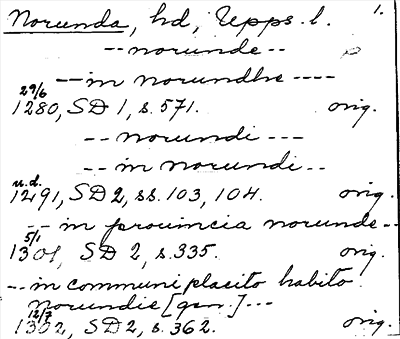 Norunda, hd, Upps. l. 1.
-- norunde --
-- in norundhe ----
29/6
1280, SD 1, s. 571. orig.
-- norundi ---
-- in norundi --
u.d.
1291, SD 2, ss. 103, 104. orig.
-- in prouincia norunde --
5/1
1301, SD 2, s. 335. orig.
-- in communi placito habito
Norundie [gen.] ---
12/7
1302, SD 2, s. 362. orig.